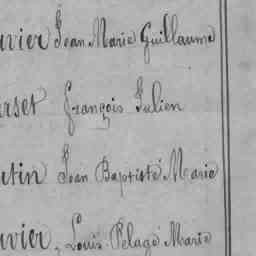 uvier Jean Marie Guillaume
rset François Julien
tin Jean Baptiste Marie
uvier, Louis Pélage Marie